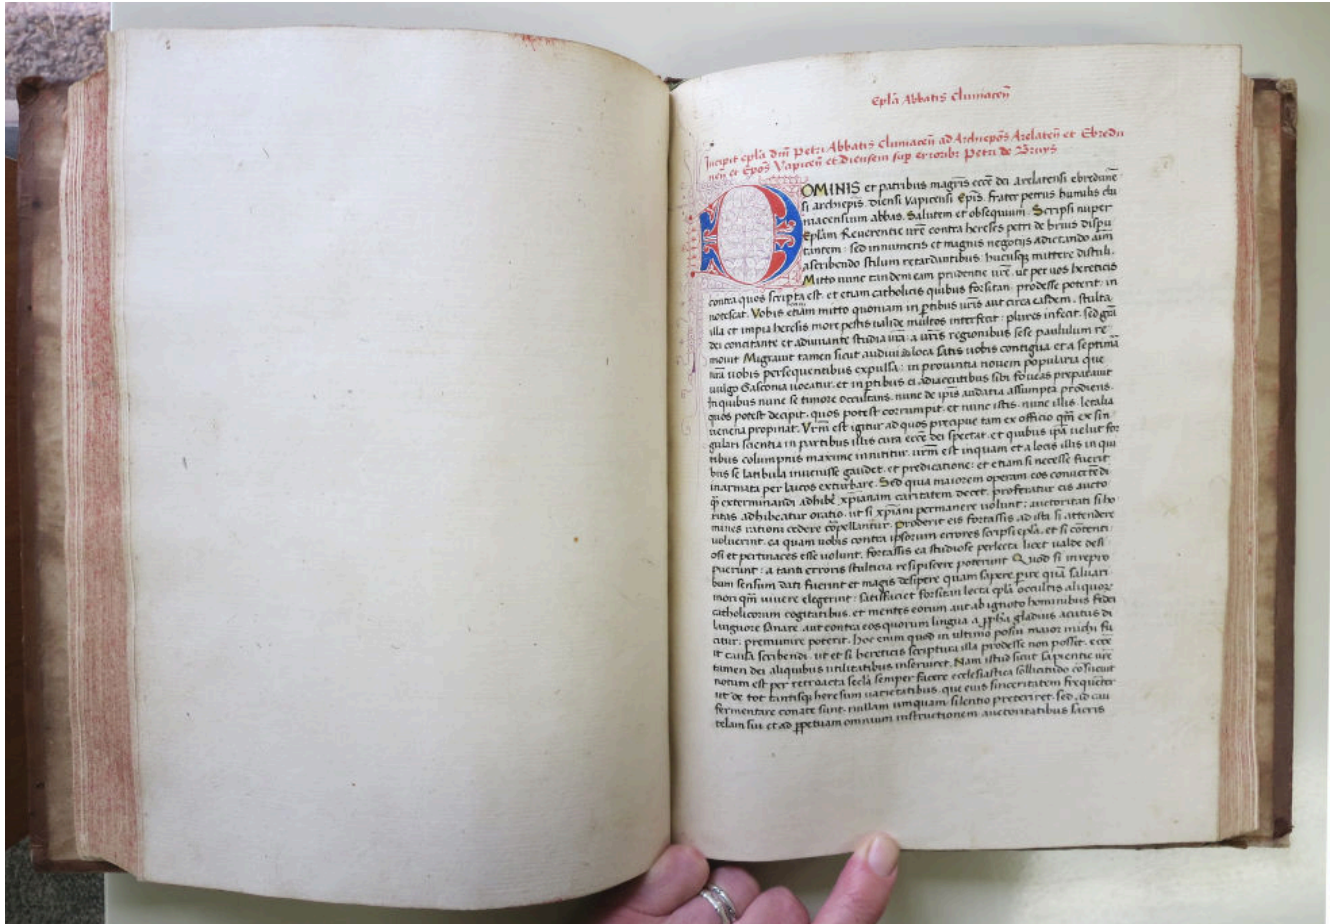 Epl̃a Abbatis Cluniaceñ
Incipit epl̃a dñi Petri Abbatis Cluniaceñ ad Archiepõs Arelateñ et Ebredu
neñ et Epõs Vapiceñ et Diensem sup erroribꝰ Petri de Bruys
DOMINIS et patribus magris ecce dei Arelatensi ebredune
si archiepis. diensi Vapicensi Epis. frater petrus humilis clu
niacensium abbas. Salutem et obsequium. Scripsi nuper
Epl̃am Reuerentie ure contra hereses petri de bruis dispu
tantem: sed innumeris et magnis negotijs a dictando aĩm
a scribendo stilum retardantibus: hucusq mittere distuli.
Mitto nunc tandem eam prudentie ure. ut per uos hereticis
contra quos scripta est. et etiam catholicis quibus forsitan prodesse poterit: in
notescat. Vobis etiam mitto quoniam in ptibus uris aut circa easdem. stulta
illa et impia heresis more pestis ualide multos interfecit: plures infecit. sed gra
dei concitante et adiuuante studia ura: a uris regionibus sese paululum re
mouit Migrauit tamen sicut audiui ad loca satis uobis contigua et a septima
nra uobis persequentibus expulsa: in prouintia nouem popularia que
uulgo Gasconia uocatur. et in ptibus ei adiacentibus sibi foueas preparauit
In quibus nunc se timore occultans. nunc de ipis audatia assumpta prodiens.
quos potest decipit. quos potest corrumpit. et nunc istis. nunc illis. letalia
uenena propinat. Vrm est igitur ad quos precipue tam ex officio qm ex sin
gulari scientia in partibus illis cura ecce dei spectat. et quibus ipa uelut for
tibus columpnis maxime innititur. urm est inquam et a locis illis in qui
bus se latibula inuenisse gaudet. et predicatione: et etiam si necesse fuerit
in armata per laicos exturbare. Sed quia maiorem operam eos conuertedi
q exterminandi adhibe xpianam caritatem decet. proferatur eis aucto
ritas adhibeatur oratio. ut si xpiani permanere uolunt: auctoritati si ho
mines rationi cedere copellantur. proderit eis fortassis ad ista si attendere
uoluerint. ea quam uobis contra ipsorum errores scripsi epla. et si cotenti
osi et pertinaces esse uolunt. fortassis ea studiose perlecta licet ualde desi
puerint: a tanti erroris stulticia resipiscere poterunt Quod si in repro
bum sensum dati fuerint et magis desipere quam sapere. pire qua saluari
mori qm uiuere elegerint: satisfaciet forsitan lecta epla occultis aliquor
catholicorum cogitatibus. et mentes eorum aut ab ignoto hominibus fidei
languore sanare. aut contra eos quorum lingua a ppha gladius acutus di
citur: premunire poterit. hoc enim quod in ultimo posui maior michi fu
it causa scribendi. ut et si hereticis scriptura illa prodesse non posset. ecce
tamen dei aliquibus utilitatibus inseruiret. Nam istud sicut sapientie ure
notum est per retroacta secla semper facere ecclesiastica sollicitudo cosueuit
ut de tot tantisq heresum uarietatibus. que eius sinceritatem frequeter
fermentare conate sunt. nullam umquam silentio preteriret. sed. ad cau
telam sui et ad ppetuam omnium instructionem auctoritatibus sacris